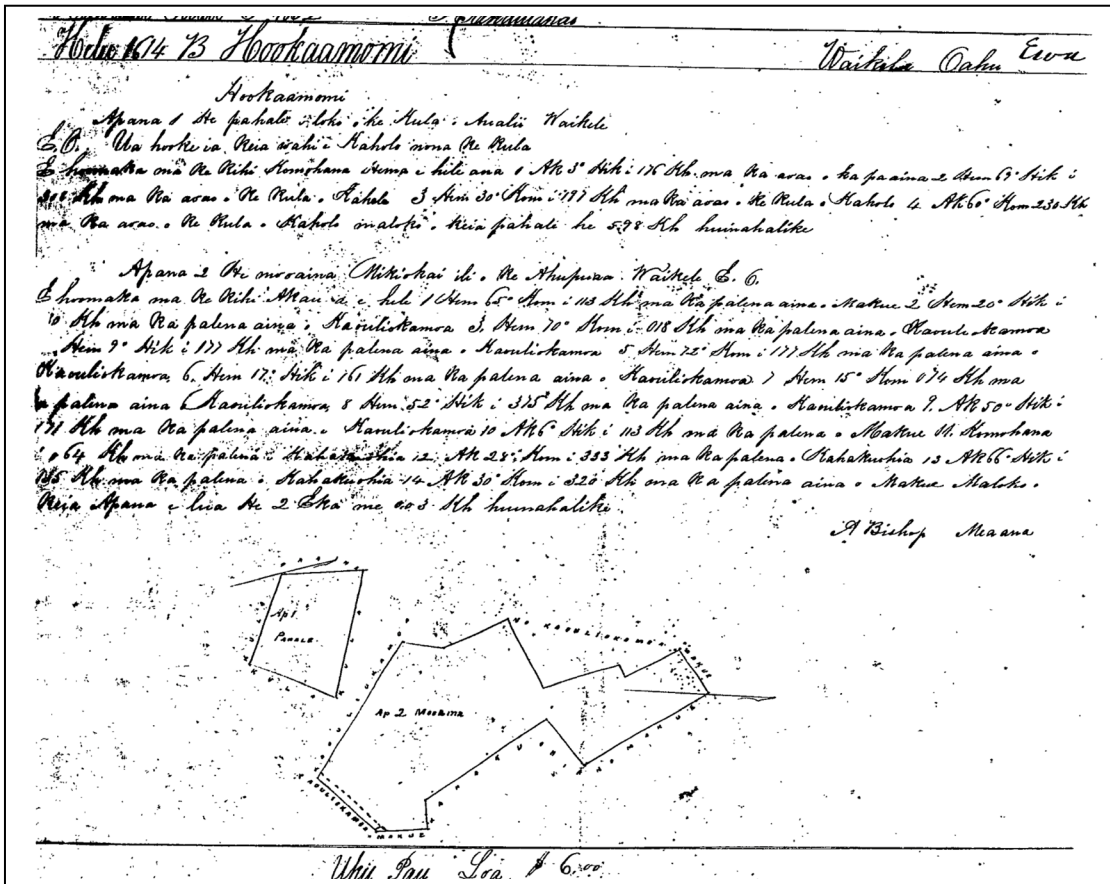 Helu 1614 B Hookaamomi Waikele Oahu Ewa
Hookaamomi
Apana 1 He pahale i loko i ke Kula o Aualii Waikele
E.O. Ua hooke ia Keia wahi i Kaholo nona Ke Kula
E hoomaka ma Ke Kihi Komohana Hema e hele ana 1 AK 5° Hik i 176 Kh. ma Ka aoao o ka paaina 2 Hem 69° Hik i
Kh ma Ka aoao o Ke Kula o Kaholo 3 Hem 30° Kom i 197 Kh ma Ka aoao o Ke Kula o Kaholo 4 AK 60° Kom 230 Kh
ma Ka aoao o Ke Kula o Kaholo maloko o Keia pahale he 598 Kh huinahalike
Apana 2 He mooaina Mikiokai ili o Ke Ahupuaa Waikele E. O.
E hoomaka ma Ke Kihi Akau a e hele 1 Hem 65° Kom i 113 Kh ma Ka palena aina o Makue 2 Hem 20° Hik i
10 Kh ma Ka palena aina o Kaouliokamoa 3. Hem 70° Kom i 018 Kh ma Ka palena aina o Kaouliokamoa
Hem 9° Hik i 177 Kh ma Ka palena aina o Kaouliokamoa 5 Hem 72° Kom i 177 Kh ma Ka palena aina o
Kaouliokamoa, 6. Hem 17° Hik i 161 Kh ma Ka palena aina o Kaouliokamoa 7 Hem 15° Kom 074 Kh ma
a palena aina o Kaouliokamoa, 8 Hem 52° Hik i 375 Kh ma Ka palena aina o Kaouliokamoa 9. AK 50° Hik i
171 Kh ma Ka palena aina o Kaouliokamoa 10 AK 6° Hik i 113 Kh ma Ka palena o Makue 11. Komohana
i 064 Kh ma Ka palena o Kahakuohia 12 AK 28° Kom i 333 Kh ma Ka palena o Kahakuohia 13 AK 66° Hik i
185 Kh ma Ka palena o Kahakuohia 14 AK 30° Kom i 320 Kh ma Ka palena aina o Makue Maloko o
Keia Apana e lua He 2 Eka me 003 Kh huinahalike
A Bishop Mea ana
Ap 1
PAHALE
NO KAOULIOKAMOA
MAKUE
Ap 2 Mooaina
KAHAKUOHIA
NO MAKUE
KAOULIOKAMOA
MAKUE
Uku Pau Loa $ 6.00